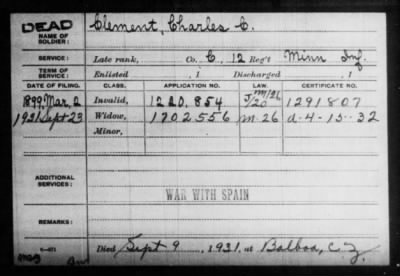 DEAD
NAME OF SOLDIER: Clement, Charles C.
SERVICE: Late rank, Co. C, 12 Reg't Minn Inf.
TERM OF SERVICE: Enlisted , 1 Discharged , 1
DATE OF FILING. CLASS. APPLICATION NO. LAW. CERTIFICATE NO.
1899 Mar, 2 Invalid, 1220,854 1291807
1931 Sept 23 Widow, 1702556 M-26 d-4-15-32
Minor,
ADDITIONAL SERVICES:
WAR WITH SPAIN
REMARKS:
Died Sept 9, 1931, at Balboa, C.Z.